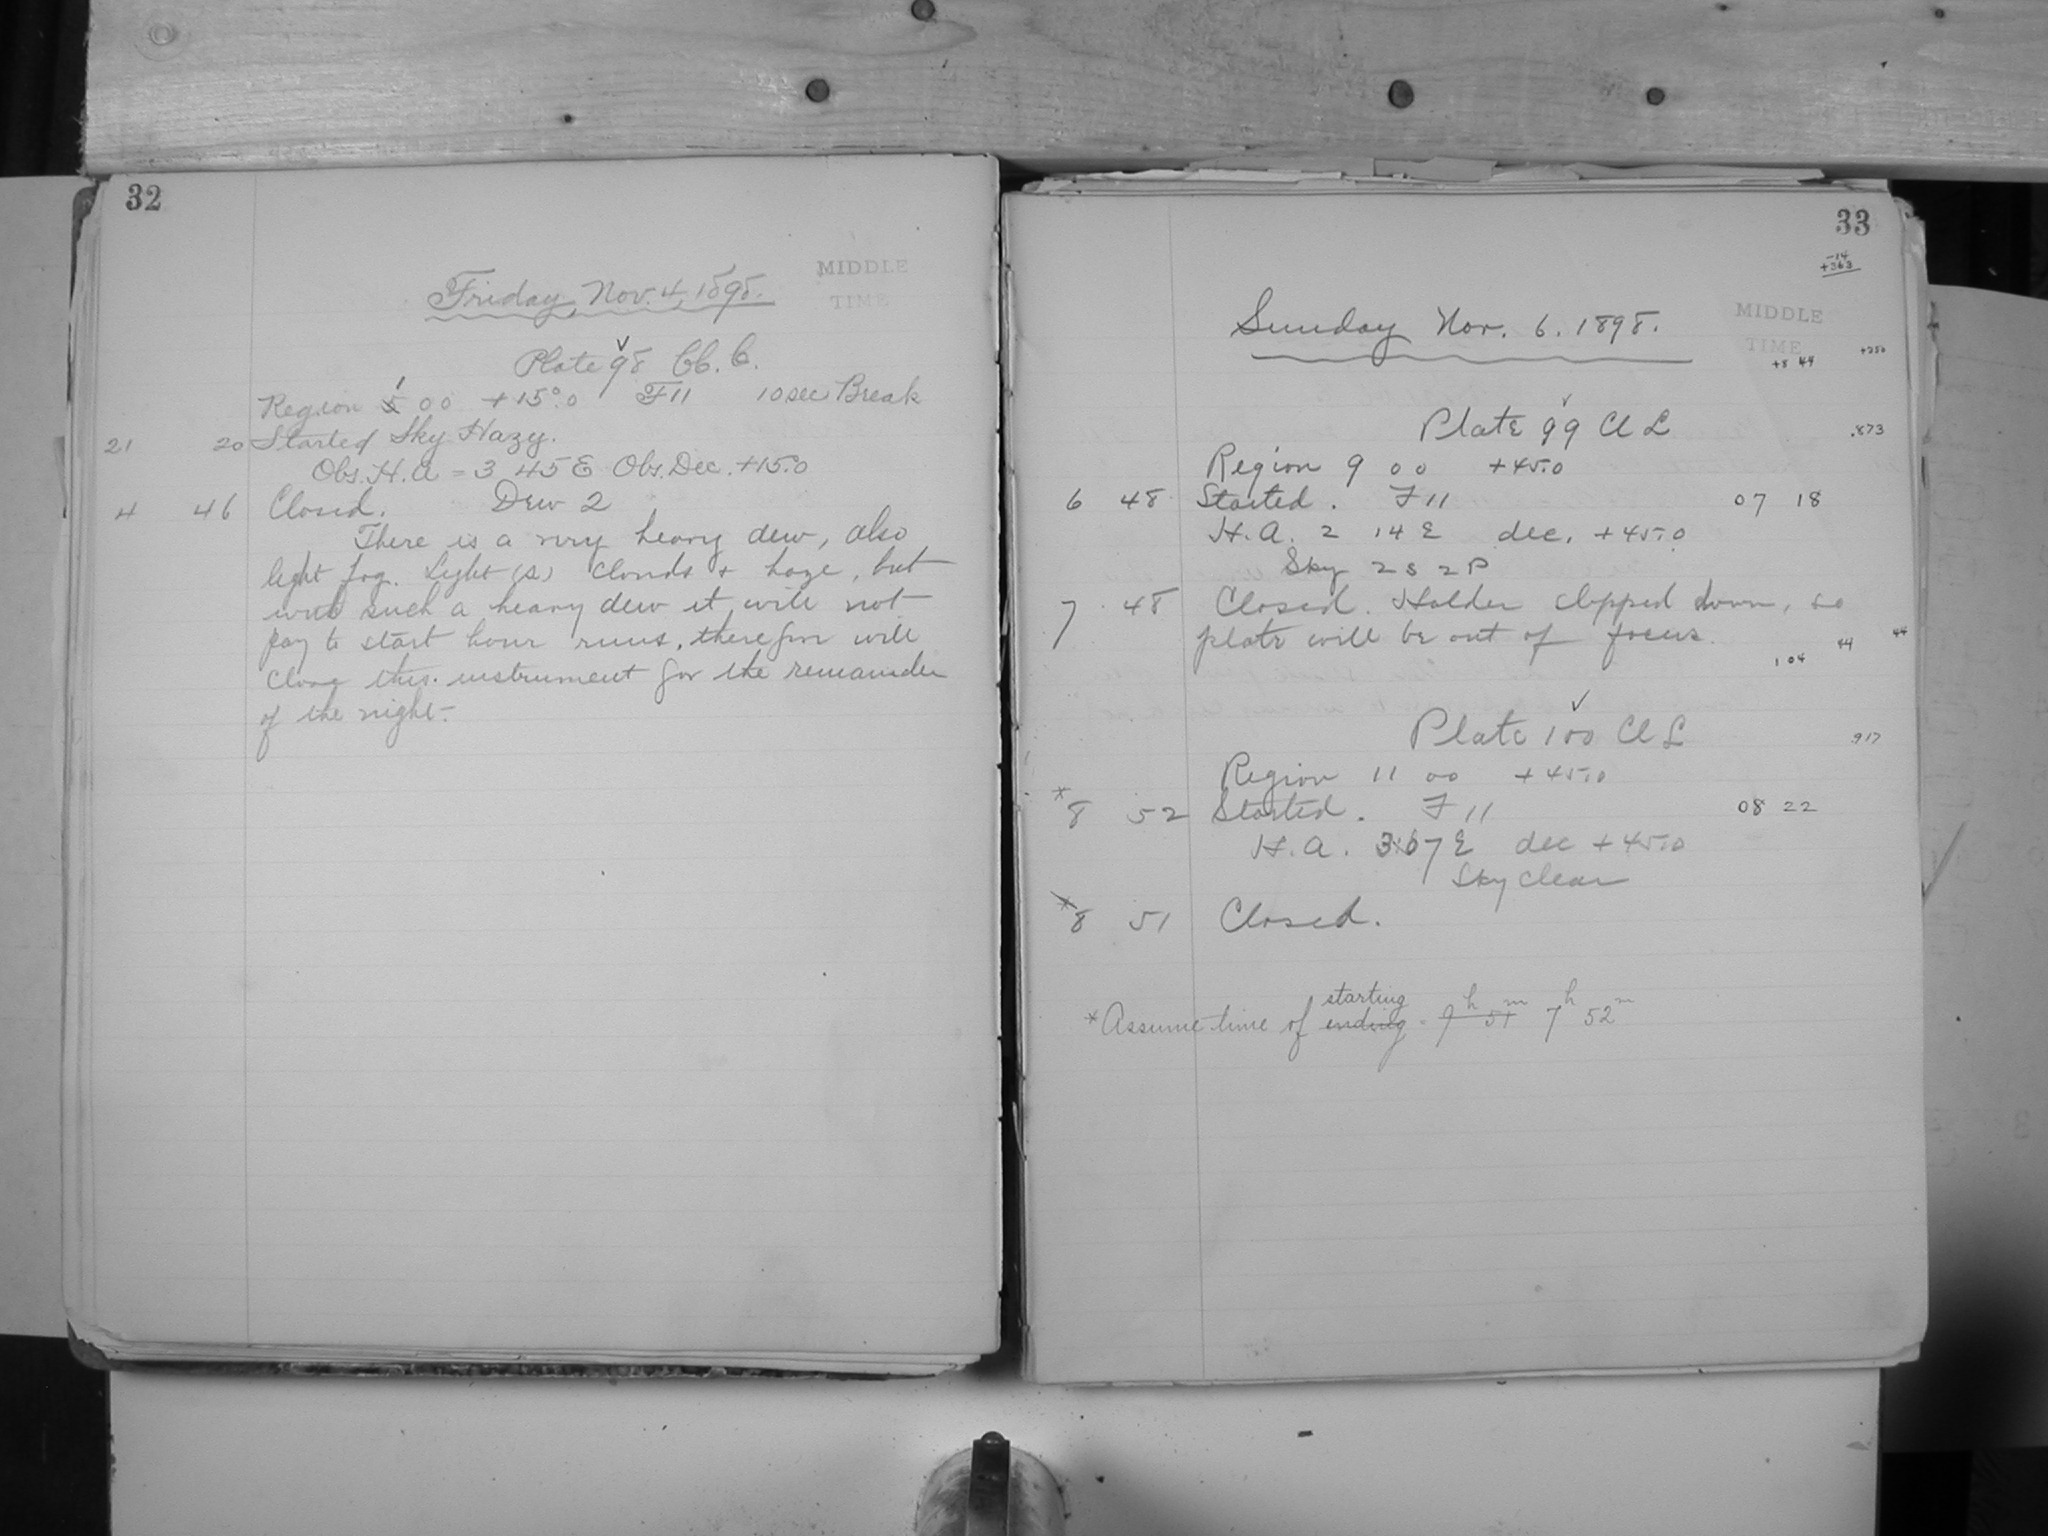 32
MIDDLE
TIME
Friday, Nov. 4, 1898.
✓
Plate 98 Cb. C.
1
Region 5 00 +15°.0 F11 10 sec Break
21 20 Started Sky Hazy.
Obs. H. A = 3 45 E Obs. Dec. +15.0
4 46 Closed. Dew 2
There is a very heavy dew, also
light fog. Light (s) clouds + haze, but
with such a heavy dew it will not
pay to start hour runs, therefore will
close this instrument for the remainder
of the night.
33
-14
+363
MIDDLE
TIME
Sunday Nov. 6. 1898.
+8 44 +250
✓
Plate 99 Cl L .873
Region 9 00 +45.0
6 48 Started. F 11 07 18
H. A. 2 14 E dec. +45.0
Sky 2 S 2 P
7 48 Closed. Holder slipped down, so
plate will be out of focus.
44 44
1 04
✓
Plate 100 Cl L .917
Region 11 00 +45.0
* 8 52 Started. F 11 08 22
H. A. 3 07 E dec +45.0
Sky clear
* 8 51 Closed.
starting
* Assume time of ending = 9h 51m 7h 52m